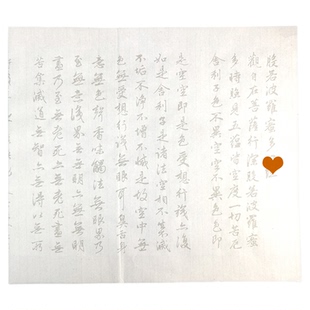 般若波羅蜜多
觀自在菩薩行深般若波羅蜜
多時照見五蘊皆空度一切苦厄
舍利子色不異空空不異色色即
是空空即是色受想行識亦復
如是舍利子是諸法空相不生不滅
不垢不淨不增不減是故空中無
色無受想行識無眼耳鼻舌身
意無色聲香味觸法無眼界乃
至無意識界無無明亦無無明
盡乃至無老死亦無老死盡無
苦集滅道無智亦無得以無所